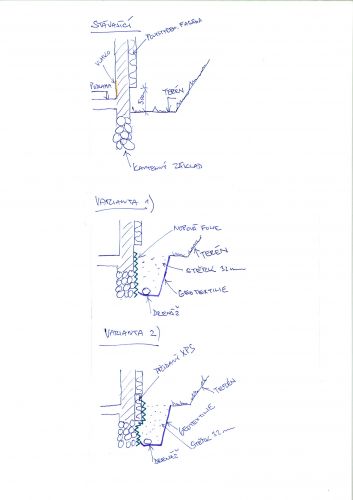 STÁVAJÍCÍ
POLYSTYREN. FASÁDA
VLHKO
PODLAHA
TERÉN
KAMENNÝ ZÁKLAD
VARIANTA 1)
NOPOVÁ FOLIE
TERÉN
ŠTĚRK 32mm
GEOTEXTILIE
DRENÁŽ
VARIANTA 2)
PŘIDANÝ XPS
TERÉN
GEOTEXTILIE
ŠTĚRK 32mm
DRENÁŽ